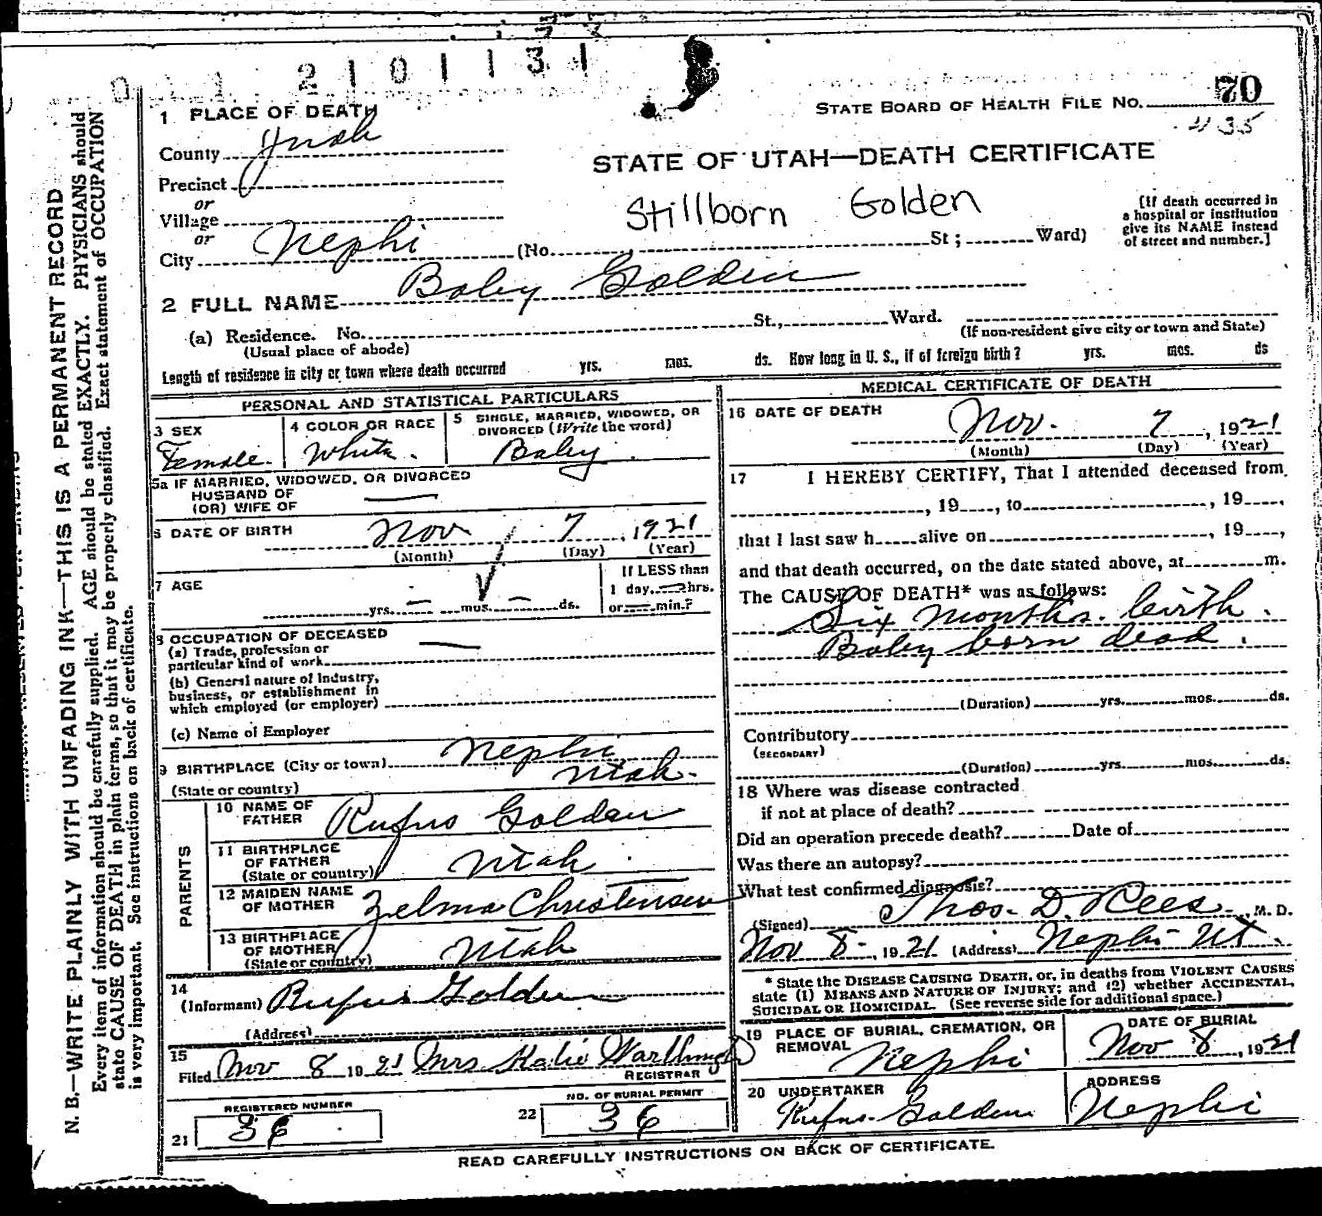 2 1 0 1 1 3 1
STATE BOARD OF HEALTH FILE NO. 70
435
1 PLACE OF DEATH
County Juab
STATE OF UTAH—DEATH CERTIFICATE
Precinct
or
Village
or
City Nephi
Stillborn Golden
(No. St; Ward)
[If death occurred in
a hospital or institution
give its NAME instead
of street and number.]
2 FULL NAME Baby Golden
(a) Residence. No. St., Ward.
(Usual place of abode)
(If non-resident give city or town and State)
Length of residence in city or town where death occurred yrs. mos. ds. How long in U. S., if of foreign birth? yrs. mos. ds
PERSONAL AND STATISTICAL PARTICULARS
3 SEX
Female
4 COLOR OR RACE
White.
5 SINGLE, MARRIED, WIDOWED, OR
DIVORCED (Write the word)
Baby.
5a IF MARRIED, WIDOWED, OR DIVORCED
HUSBAND OF
(OR) WIFE OF
6 DATE OF BIRTH Nov 7, 1921
(Month) (Day) (Year)
7 AGE
yrs. — mos. — ds.
If LESS than
1 day, — hrs.
or — min.?
8 OCCUPATION OF DECEASED
(a) Trade, profession or
particular kind of work
(b) General nature of Industry,
business, or establishment in
which employed (or employer)
(c) Name of Employer
9 BIRTHPLACE (City or town) Nephi
(State or country) Utah.
PARENTS
10 NAME OF
FATHER Rufus Golden
11 BIRTHPLACE
OF FATHER
(State or country) Utah
12 MAIDEN NAME
OF MOTHER Zelma Christensen
13 BIRTHPLACE
OF MOTHER
(State or country) Utah
14
(Informant) Rufus Golden
(Address)
15
Filed Nov 8 1921 Mrs Katie
REGISTRAR
REGISTERED NUMBER
21 36
NO. OF BURIAL PERMIT
22 36
MEDICAL CERTIFICATE OF DEATH
16 DATE OF DEATH
Nov. 7, 1921
(Month) (Day) (Year)
17 I HEREBY CERTIFY, That I attended deceased from
, 19 , to , 19 ,
that I last saw h alive on , 19 ,
and that death occurred, on the date stated above, at m.
The CAUSE OF DEATH* was as follows:
Six months. birth.
Baby born dead.
(Duration) yrs. mos. ds.
Contributory
(SECONDARY)
(Duration) yrs. mos. ds.
18 Where was disease contracted
if not at place of death?
Did an operation precede death? Date of
Was there an autopsy?
What test confirmed diagnosis?
(Signed) Thos. D. Rees, M. D.
Nov 8, 1921 (Address) Nephi Ut.
* State the DISEASE CAUSING DEATH, or, in deaths from VIOLENT CAUSES
state (1) MEANS AND NATURE OF INJURY; and (2) whether ACCIDENTAL,
SUICIDAL OR HOMICIDAL. (See reverse side for additional space.)
19 PLACE OF BURIAL, CREMATION, OR
REMOVAL
Nephi
DATE OF BURIAL
Nov 8, 1921
20 UNDERTAKER
Rufus Golden
ADDRESS
Nephi
READ CAREFULLY INSTRUCTIONS ON BACK OF CERTIFICATE.
N. B.—WRITE PLAINLY WITH UNFADING INK—THIS IS A PERMANENT RECORD
Every item of information should be carefully supplied. AGE should be stated EXACTLY. PHYSICIANS should
state CAUSE OF DEATH in plain terms, so that it may be properly classified. Exact statement of OCCUPATION
is very important. See instructions on back of certificate.